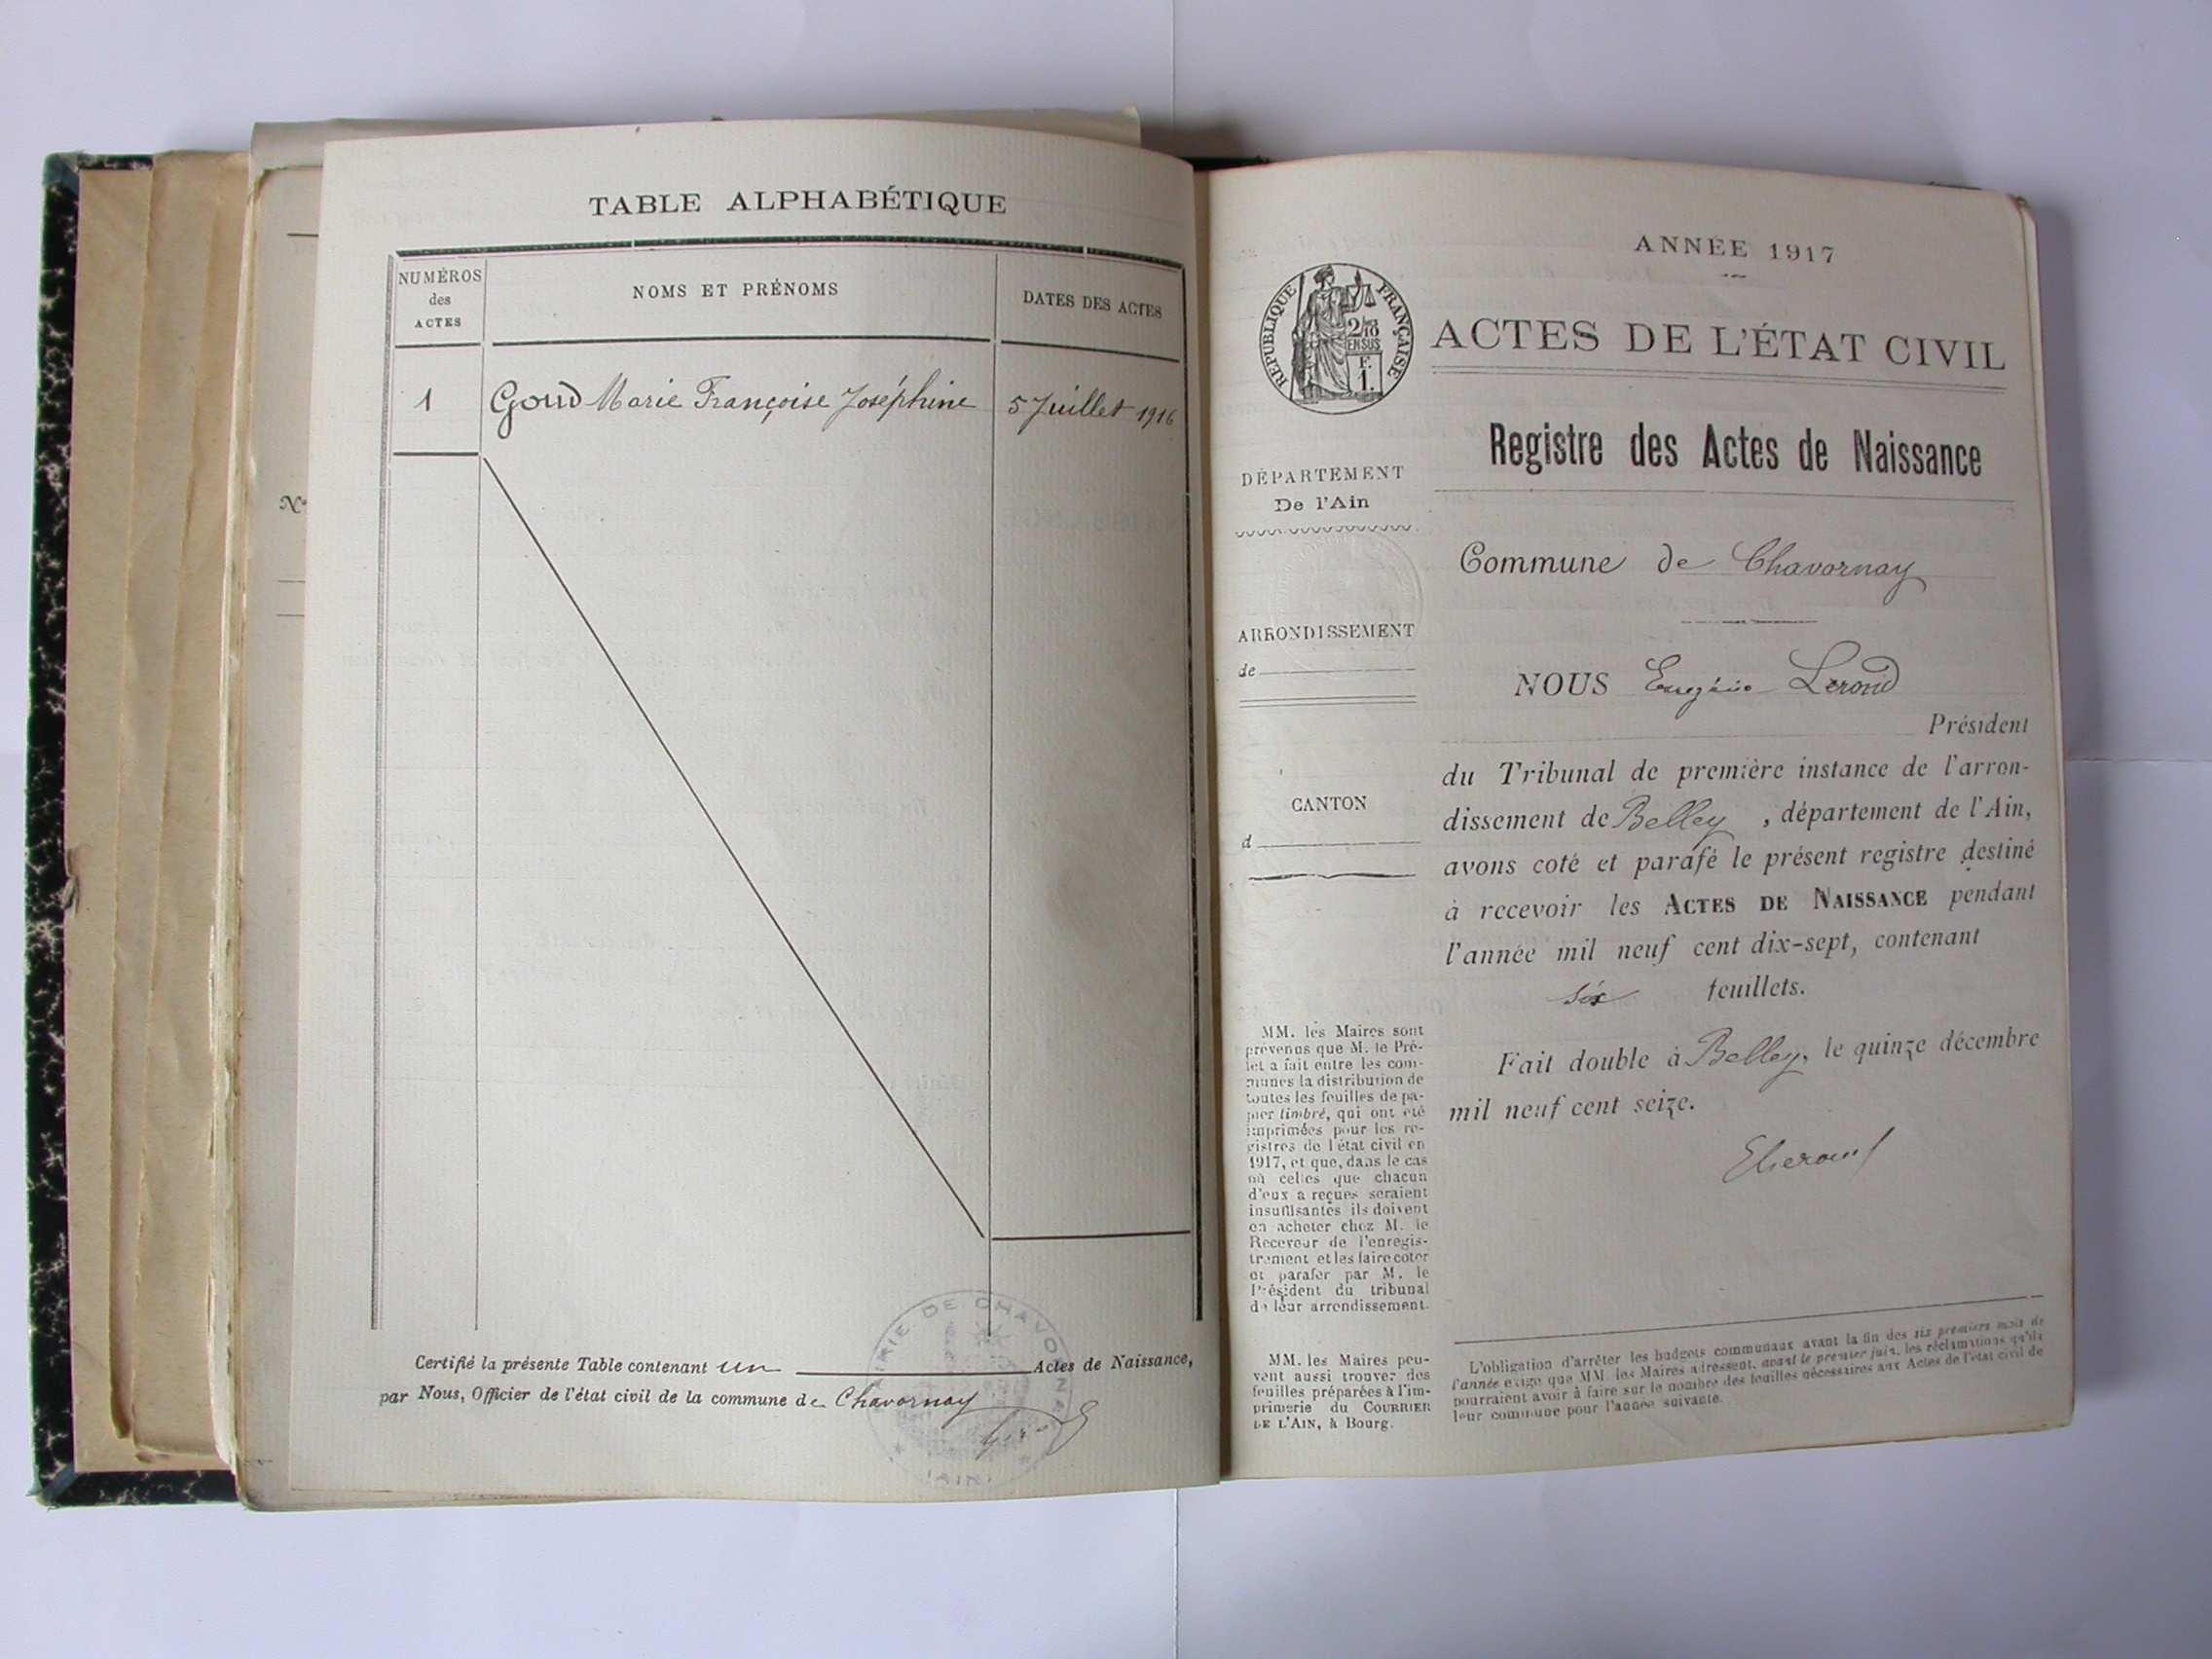 TABLE ALPHABÉTIQUE
NUMÉROS
des
ACTES
NOMS ET PRÉNOMS
DATES DES ACTES
1
Goud Marie Françoise Joséphine
5 Juillet 1916
Certifié la présente Table contenant un Actes de Naissance,
par Nous, Officier de l'état civil de la commune de Chavornay
MAIRIE DE CHAVORNAY
(AIN)
N°
ANNÉE 1917
RÉPUBLIQUE FRANÇAISE
2/10
EN SUS
F.
1.
ACTES DE L'ÉTAT CIVIL
Registre des Actes de Naissance
DÉPARTEMENT
De l'Ain
Commune de Chavornay
ARRONDISSEMENT
de
NOUS Eugène Lerond
Président
du Tribunal de première instance de l'arron-
dissement de Belley, département de l'Ain,
avons coté et parafé le présent registre destiné
à recevoir les ACTES DE NAISSANCE pendant
l'année mil neuf cent dix-sept, contenant
six feuillets.
Fait double à Belley, le quinze décembre
mil neuf cent seize.
CANTON
d
MM. les Maires sont
prévenus que M. le Pré-
fet a fait entre les com-
munes la distribution de
toutes les feuilles de pa-
pier timbré, qui ont été
imprimées pour les re-
gistres de l'état civil en
1917, et que, dans le cas
où celles que chacun
d'eux a reçues seraient
insuffisantes ils doivent
en acheter chez M. le
Receveur de l'enregis-
trement et les faire coter
et parafer par M. le
Président du tribunal
de leur arrondissement.
MM. les Maires peu-
vent aussi trouver des
feuilles préparées à l'im-
primerie du COURRIER
DE L'AIN, à Bourg.
L'obligation d'arrêter les budgets communaux avant la fin des six premiers mois de
l'année exige que MM. les Maires adressent, avant le premier juin, les réclamations qu'ils
pourraient avoir à faire sur le nombre des feuilles nécessaires aux Actes de l'état civil de
leur commune pour l'année suivante.